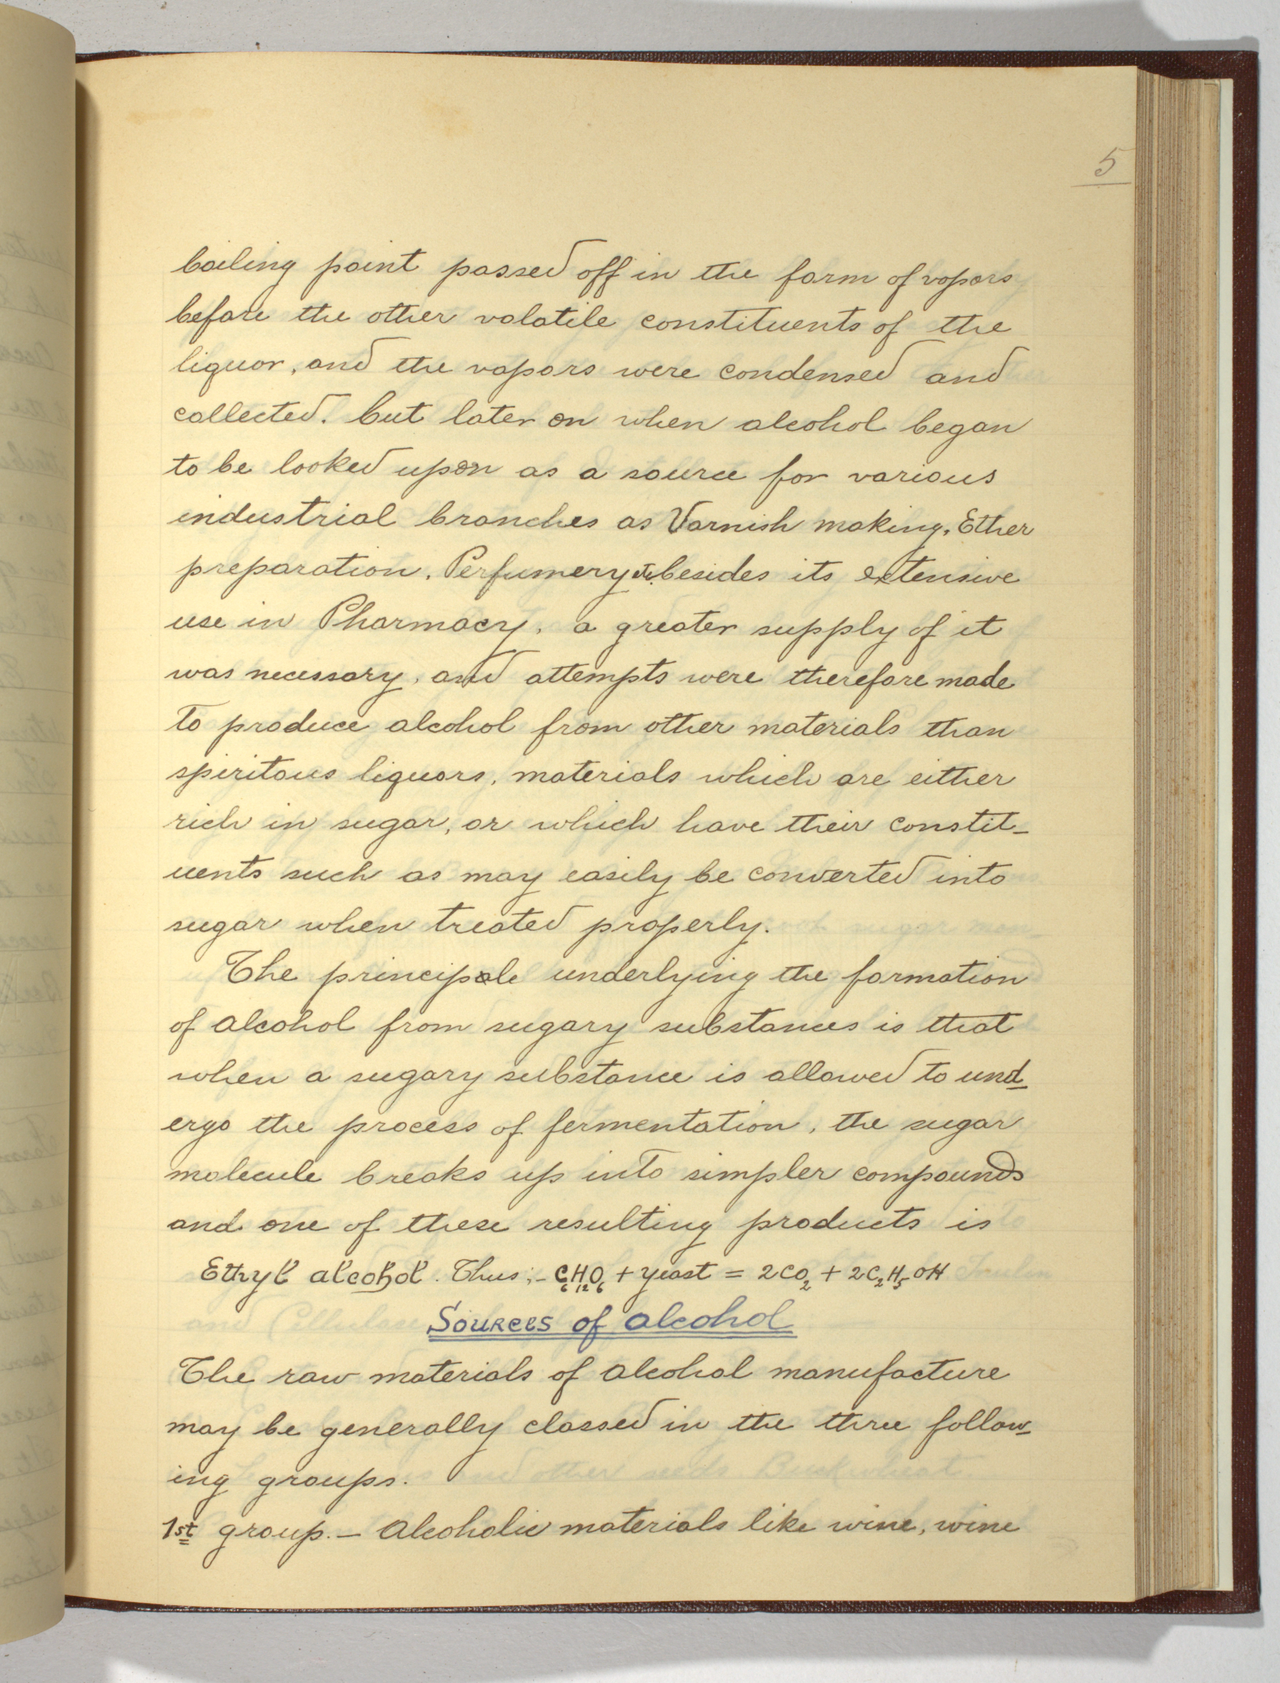 5
boiling point passed off in the form of vapors
before the other volatile constituents of the
liquor, and the vapors were condensed and
collected. but later on when alcohol began
to be looked upon as a source for various
industrial branches as Varnish making, Ether
preparation, Perfumery etc. besides its extensive
use in Pharmacy, a greater supply of it
was necessary, and attempts were therefore made
to produce alcohol from other materials than
spiritous liquors, materials which are either
rich in sugar, or which have their constit-
uents such as may easily be converted into
sugar when treated properly.
The principale underlying the formation
of alcohol from sugary substances is that
when a sugary substance is allowed to und-
ergo the process of fermentation, the sugar
molecule breaks up into simpler compounds
and one of these resulting products is
Ethyl alcohol. Thus:- C₆H₁₂O₆ + yeast = 2CO₂ + 2C₂H₅OH
Sources of alcohol
The raw materials of alcohol manufacture
may be generally classed in the three follow-
ing groups.
1st group.- Alcoholic materials like wine, wine